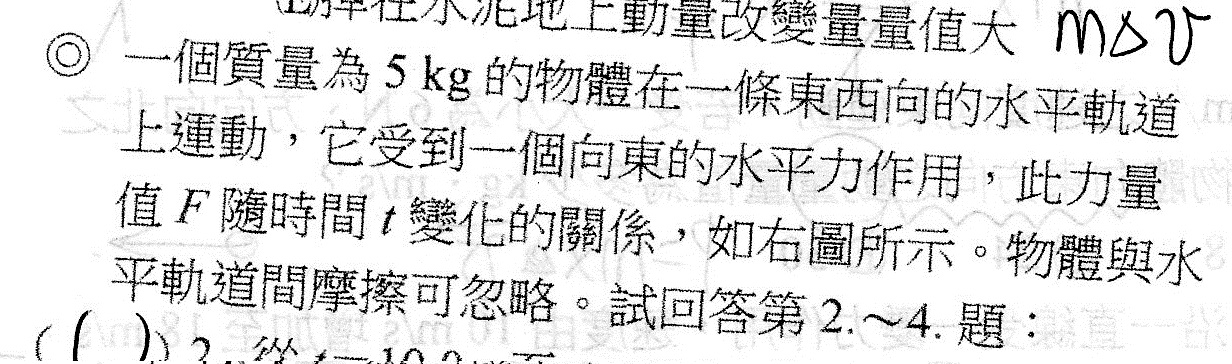 在水泥地上動量改變量量值大 m△v
◎ 一個質量為 5 kg 的物體在一條東西向的水平軌道
上運動，它受到一個向東的水平力作用，此力量
值 F 隨時間 t 變化的關係，如右圖所示。物體與水
平軌道間摩擦可忽略。試回答第 2.～4. 題：
( ) 2.